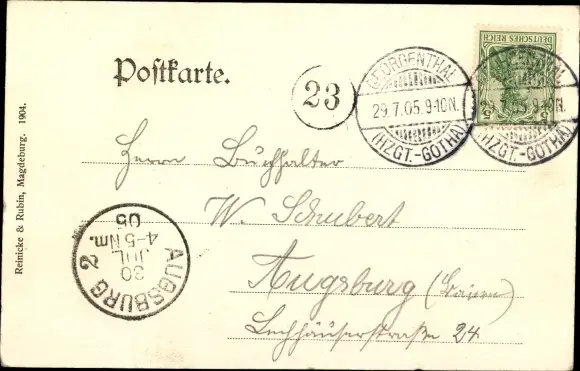 Postkarte.
23
GEORGENTHAL
29.7.05.9-10N.
(HZGT.-GOTHA)
GEORGENTHAL
29.7.05.9-10N.
(HZGT.-GOTHA)
DEUTSCHES REICH
5
5
Herrn Buchhalter
W. Schubert
Augsburg (Baiern)
Lechhäuserstraße 24
AUGSBURG 2
30
JUL
4-5 Nm.
05
Reinicke & Rubin, Magdeburg. 1904.